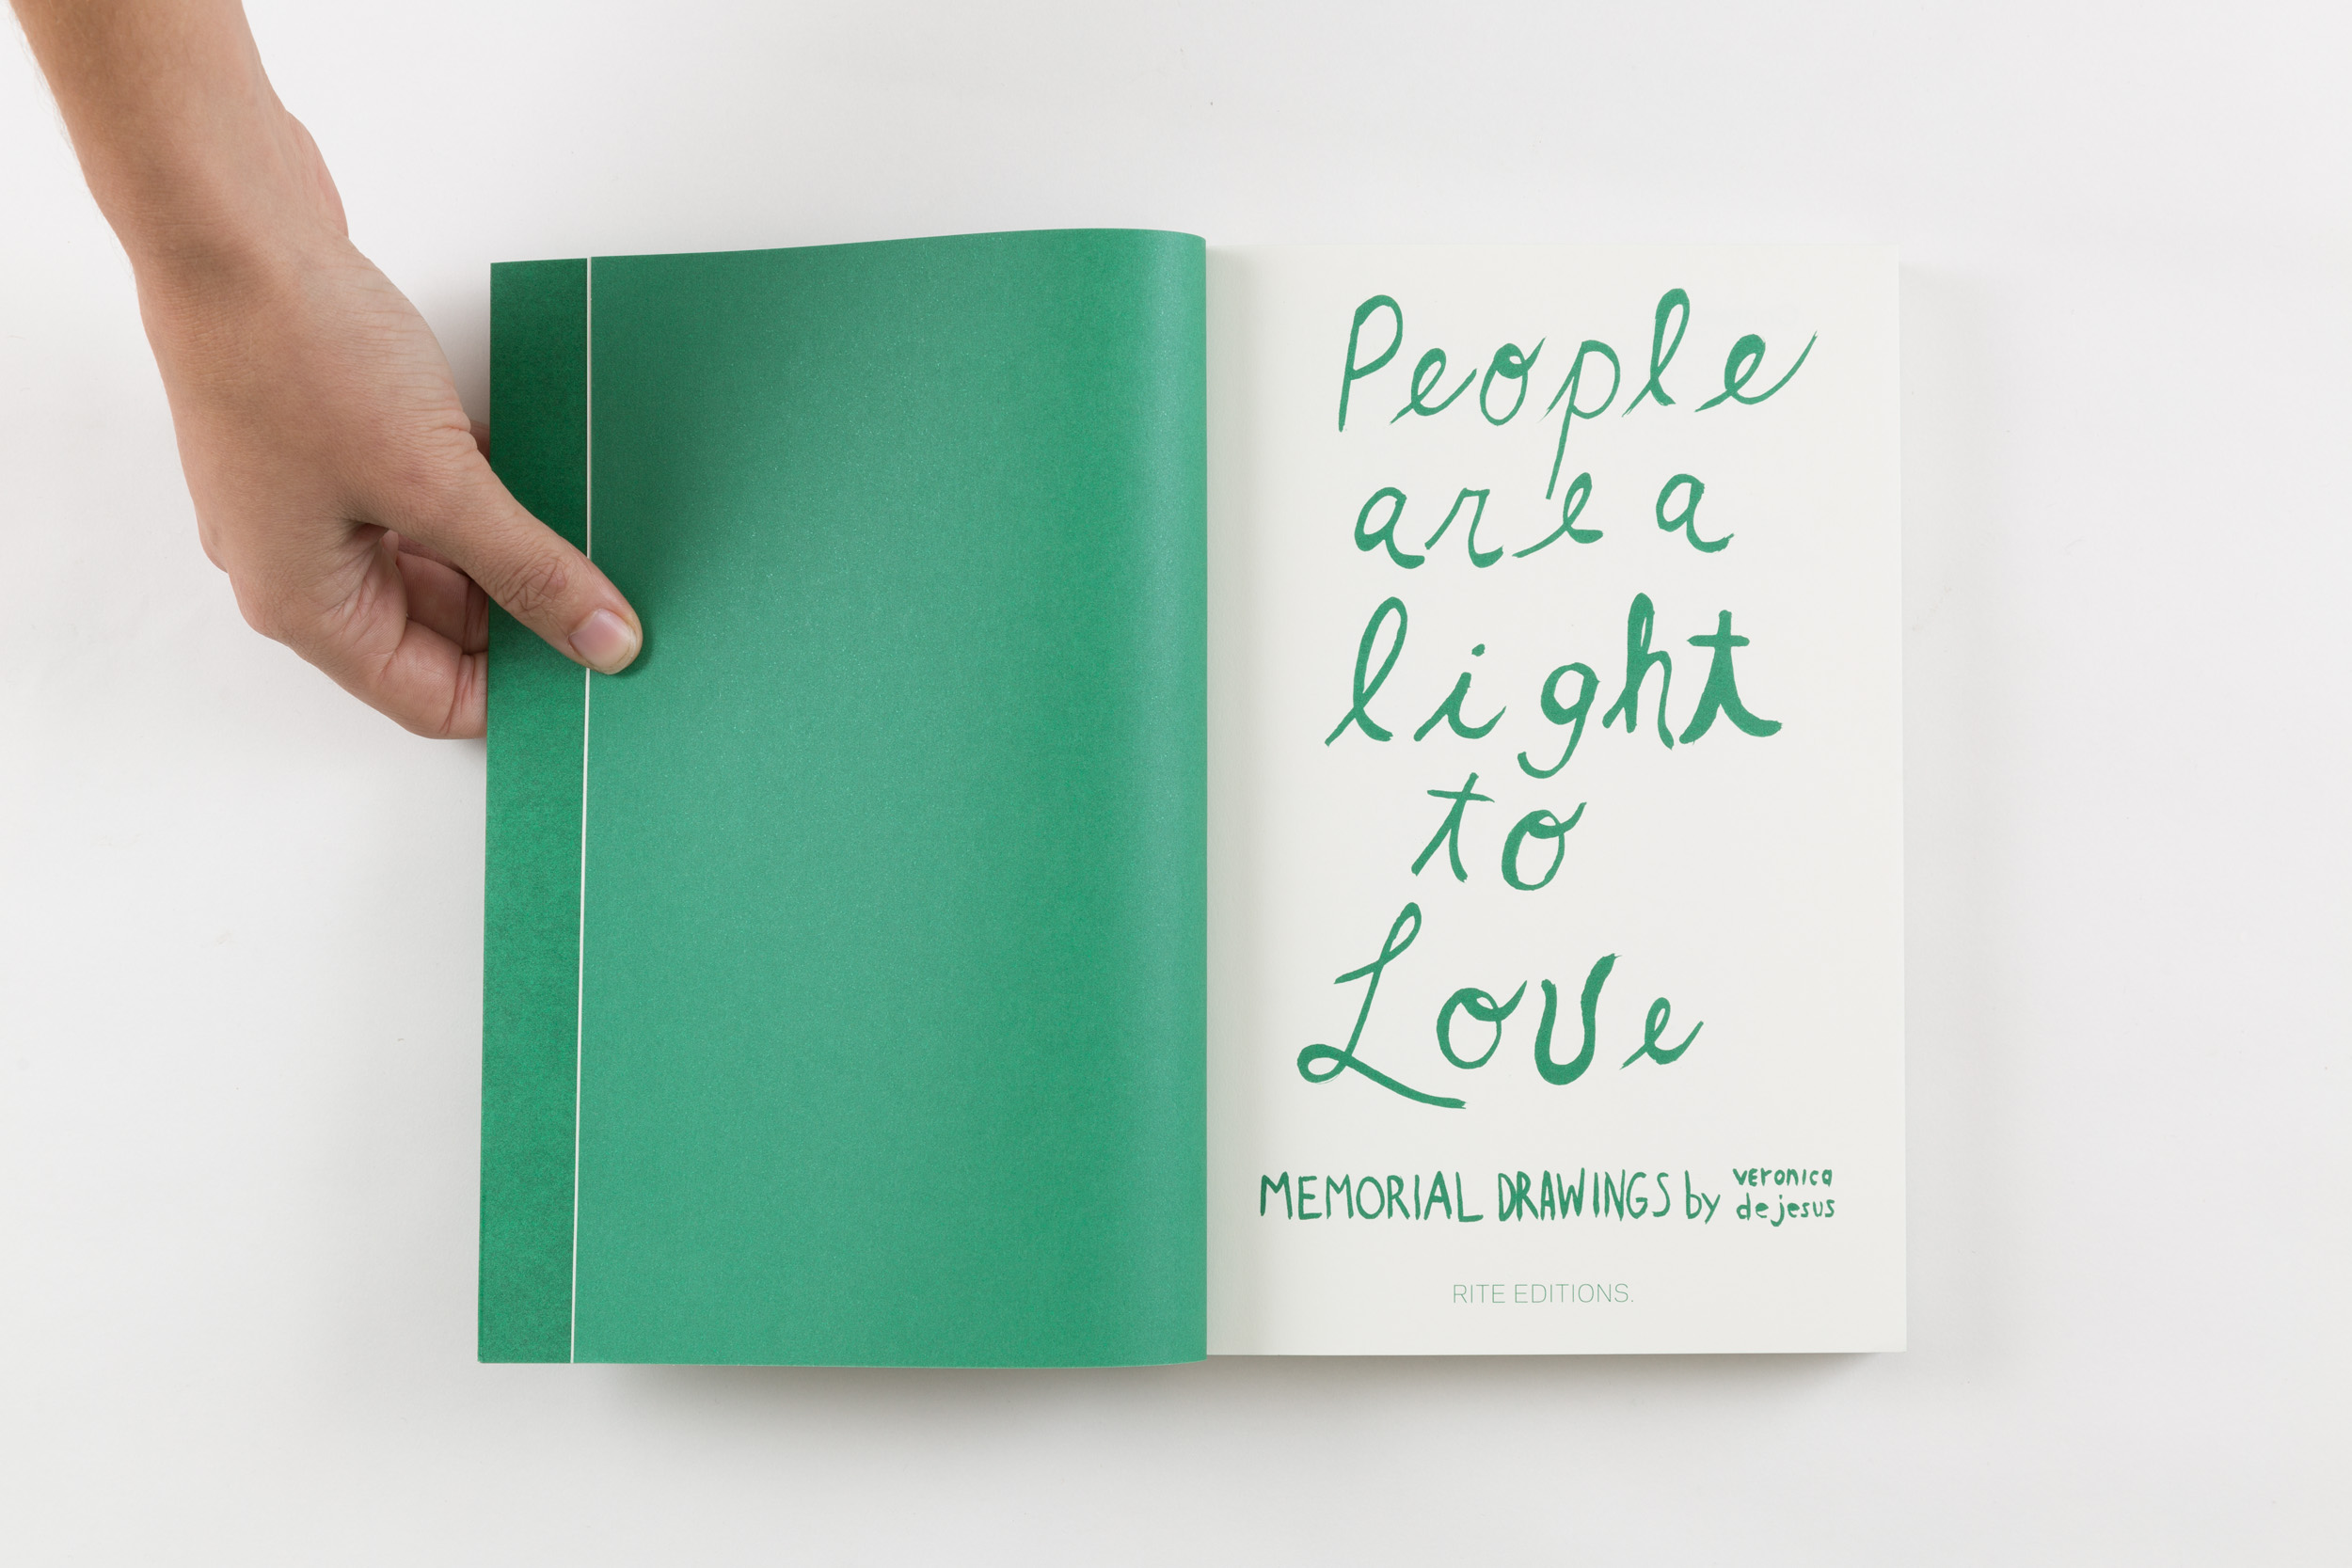 People
are a
light
to
Love
MEMORIAL DRAWINGS by veronica
dejesus
RITE EDITIONS.